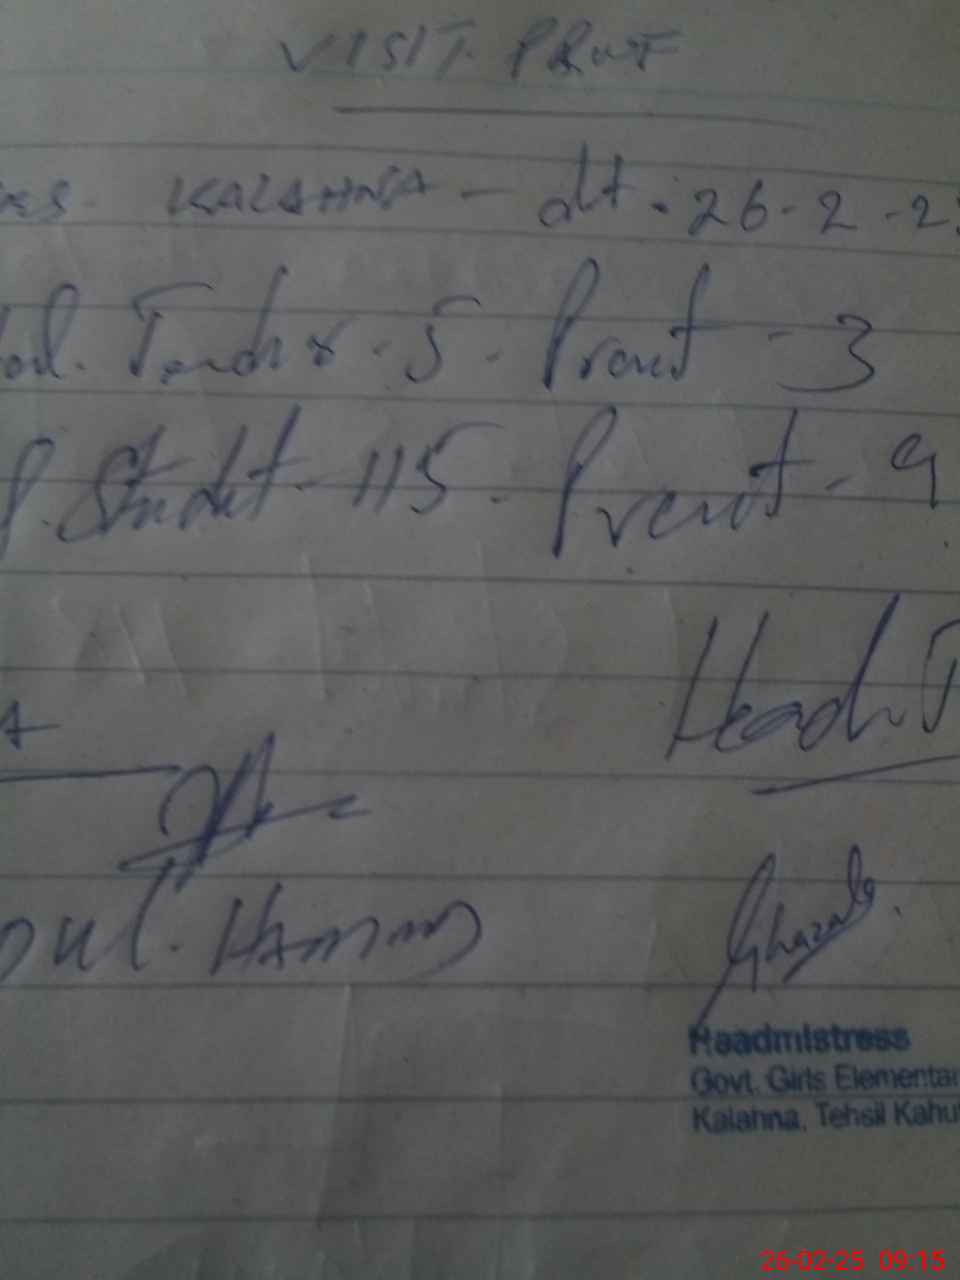 VISIT PROOF
KALAHNA - dt. 26-2-2
Teacher - 5 - Present - 3
Student - 115 - Present - 9
Head T
A
ul. Hannan
Ghazala
Headmistress
Govt. Girls Elementar
Kalahna, Tehsil Kahu
26-02-25 09:15